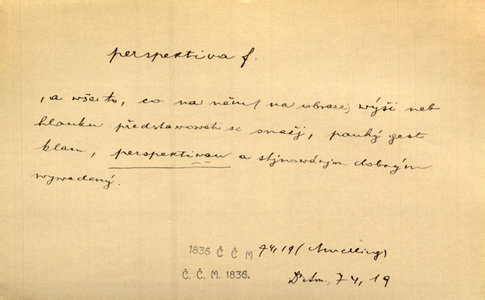 perspektiva f.
, a wšeto, co na něm (na obraze) wýši neb
hlauku představowati se snažj, pauhý gest
klam, perspektiwau a stjnowánjm dobrým
wywedený.
1836 Č Č M 74, 19 (Amerling)
Č. Č. M. 1836. 74, 19